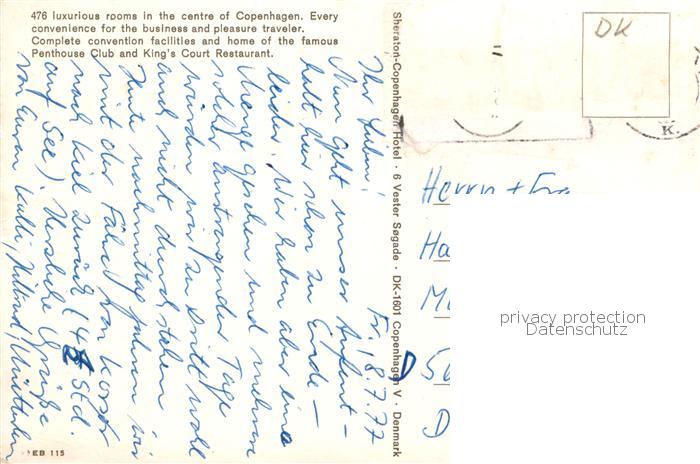 476 luxurious rooms in the centre of Copenhagen. Every
convenience for the business and pleasure traveler.
Complete convention facilities and home of the famous
Penthouse Club and King's Court Restaurant.
Fr, 8.7.77
Ihr Lieben!
Nun geht unser Aufent-
halt hier schon zu Ende –
leider. Wir haben aber eine
Menge gesehen und mehrere
solcher anstrengender Tage
würden wir zu Dritt wohl
auch nicht durchstehen
Heute nachmittag fahren wir
mit der Fähre von Korsör
nach Kiel zurück (4 Std.
auf See). Herzliche Grüße
von Euren
EB 115
Sheraton-Copenhagen Hotel · 6 Vester Søgade · DK-1601 Copenhagen V · Denmark
DK
K.
Herrn +
Ha
D
privacy protection
Datenschutz